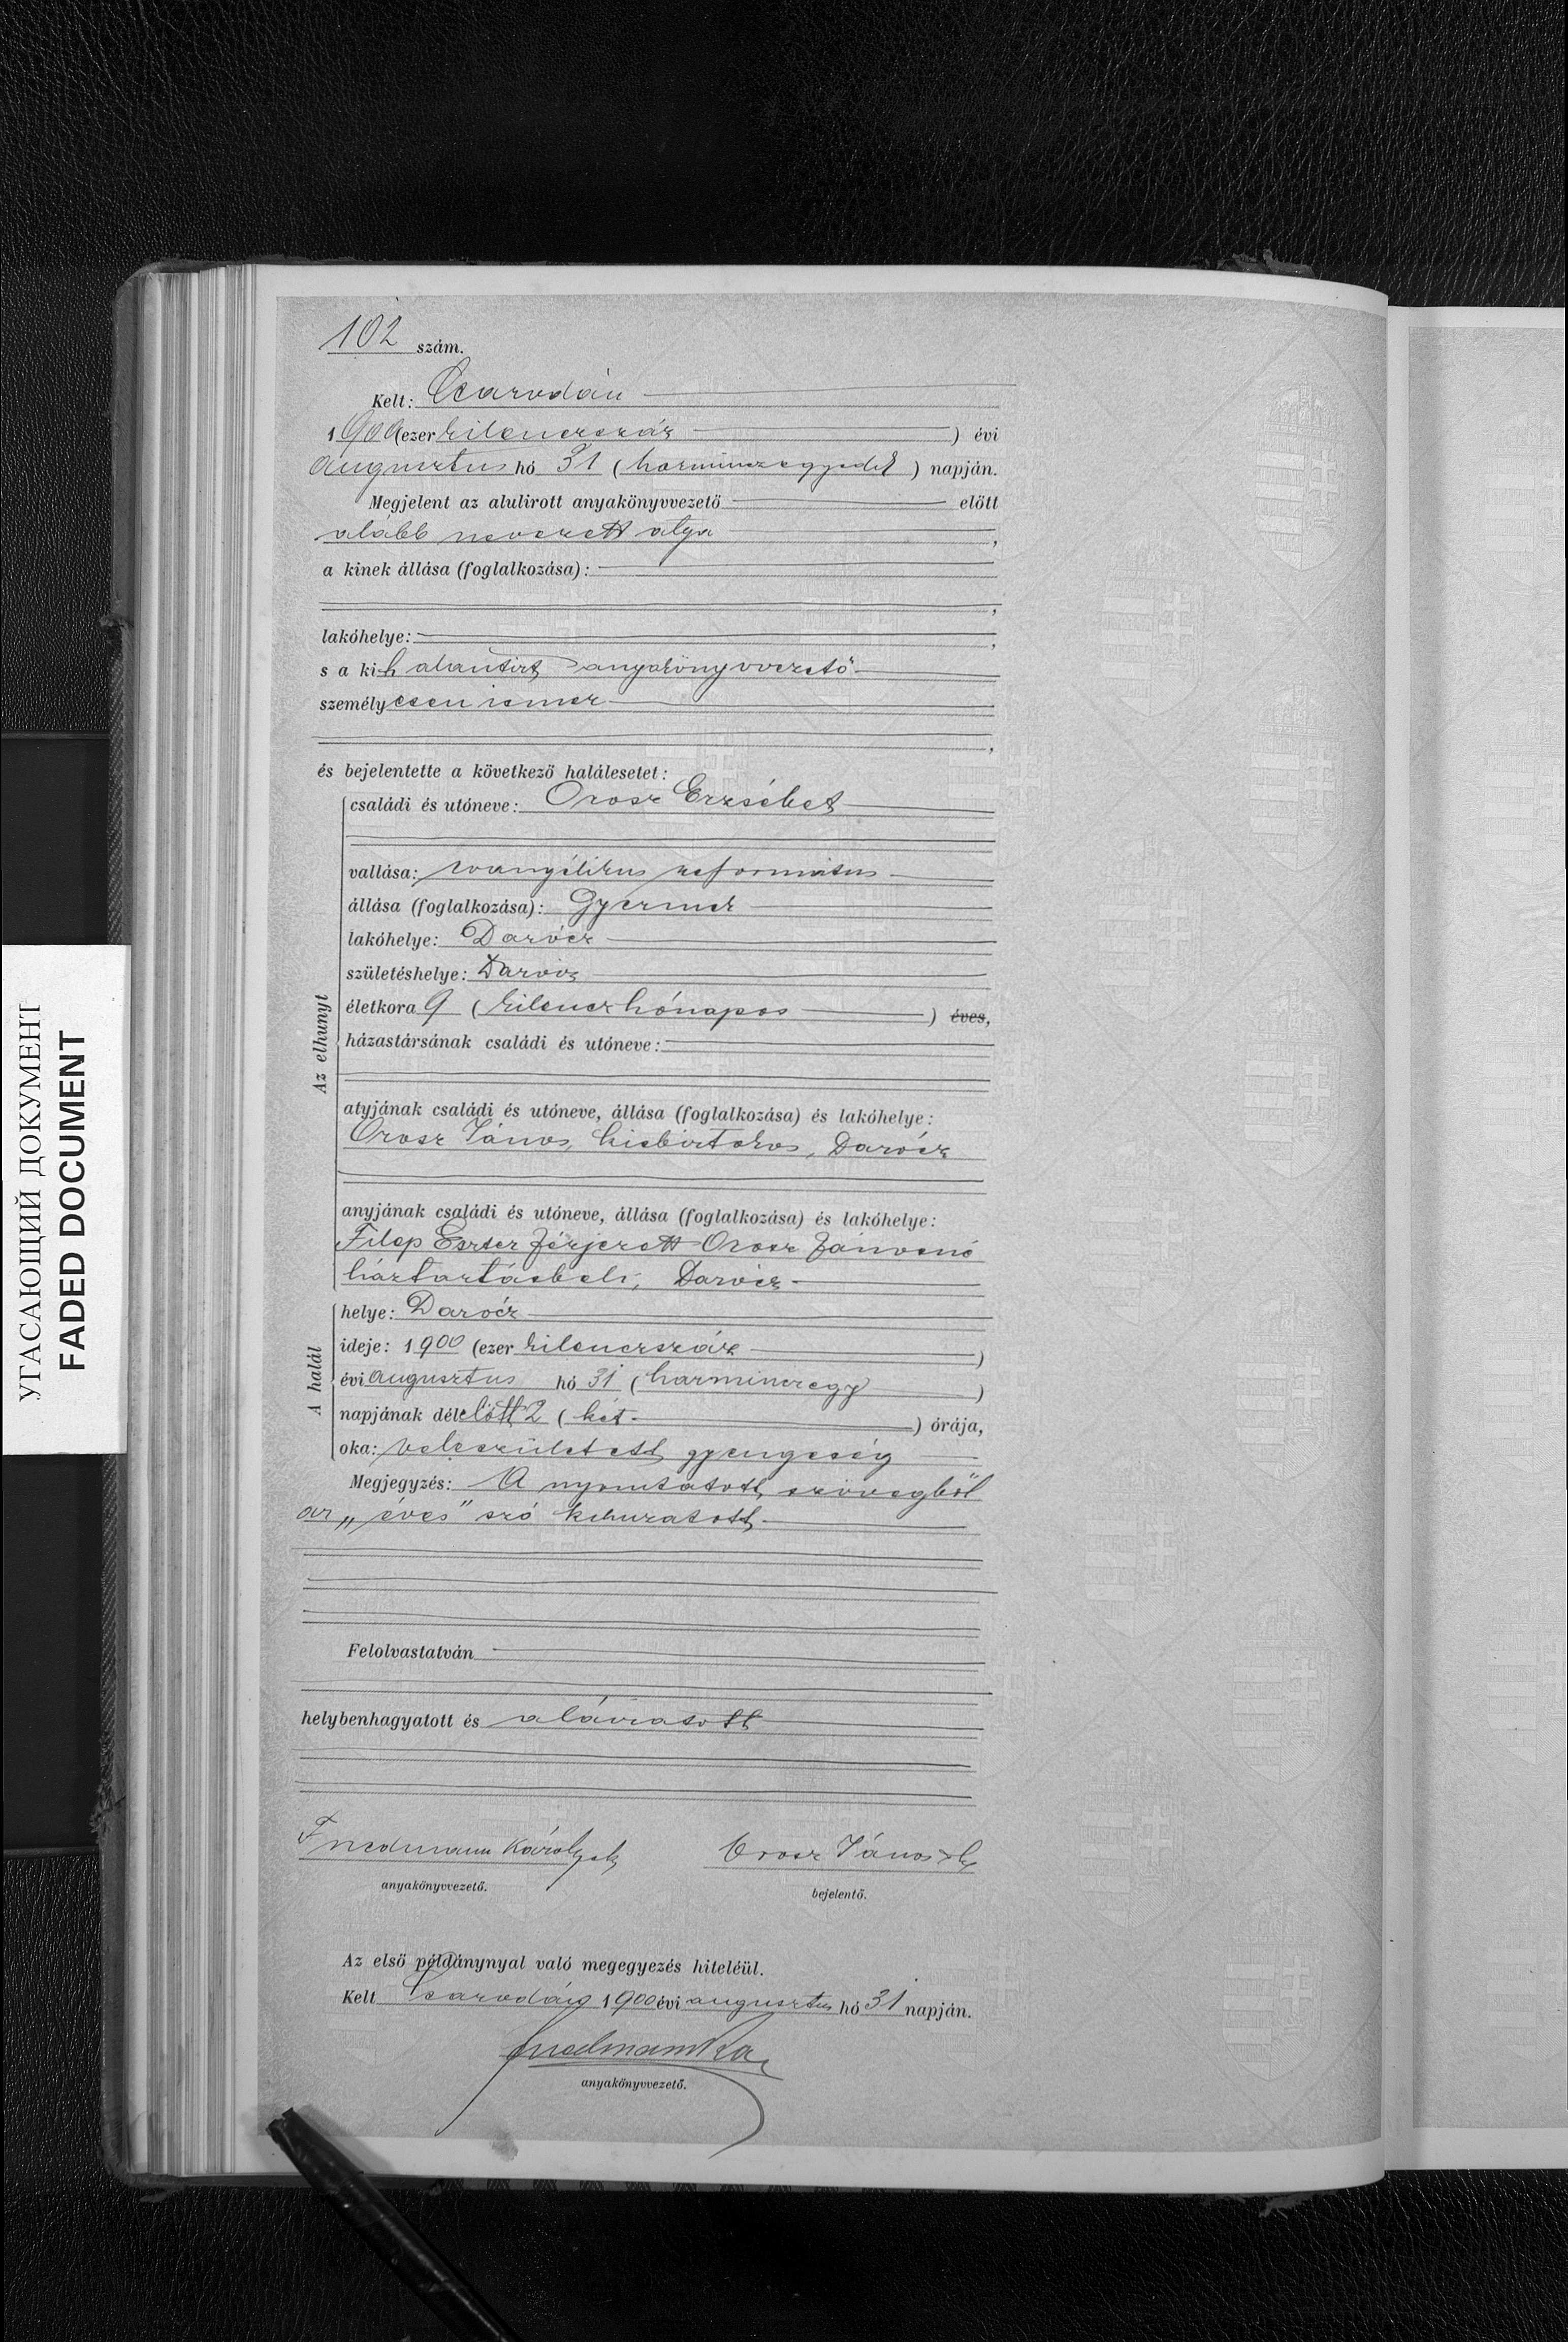 102 szám.
Kelt: Csarodán
1900 (ezer kilenczszáz ) évi
augusztus hó 31 (harminczegyedik) napján.
Megjelent az alulirott anyakönyvvezető előtt
alább nevezett atya ,
a kinek állása (foglalkozása):
,
lakóhelye: ,
s a kit alantirt anyakönyvvezető
személyesen ismer
,
és bejelentette a következő halálesetet:
Az elhunyt
családi és utóneve: Orosz Erzsébet
vallása: evangélikus református
állása (foglalkozása): Gyermek
lakóhelye: Darócz
születéshelye: Darócz
életkora 9 (kilencz hónapos ) éves,
házastársának családi és utóneve:
atyjának családi és utóneve, állása (foglalkozása) és lakóhelye:
Orosz János, kisbirtokos, Darócz
anyjának családi és utóneve, állása (foglalkozása) és lakóhelye:
Filep Eszter férjezett Orosz Jánosné
háztartásbeli, Darócz
A halál
helye: Darócz
ideje: 1900 (ezer kilenczszáz )
évi augusztus hó 31 (harminczegy )
napjának délelőtt 2 (két ) órája,
oka: veleszületett gyengeség
Megjegyzés: A nyomtatott szövegből
az „éves" szó kihuzatott.
Felolvastatván
helybenhagyatott és aláiratott
Friedmann Károly sk
anyakönyvvezető.
Orosz János sk
bejelentő.
Az első példánynyal való megegyezés hiteléül.
Kelt Csarodán 1900 évi augusztus hó 31 napján.
Friedmann
anyakönyvvezető.
УГАСАЮЩИЙ ДОКУМЕНТ
FADED DOCUMENT